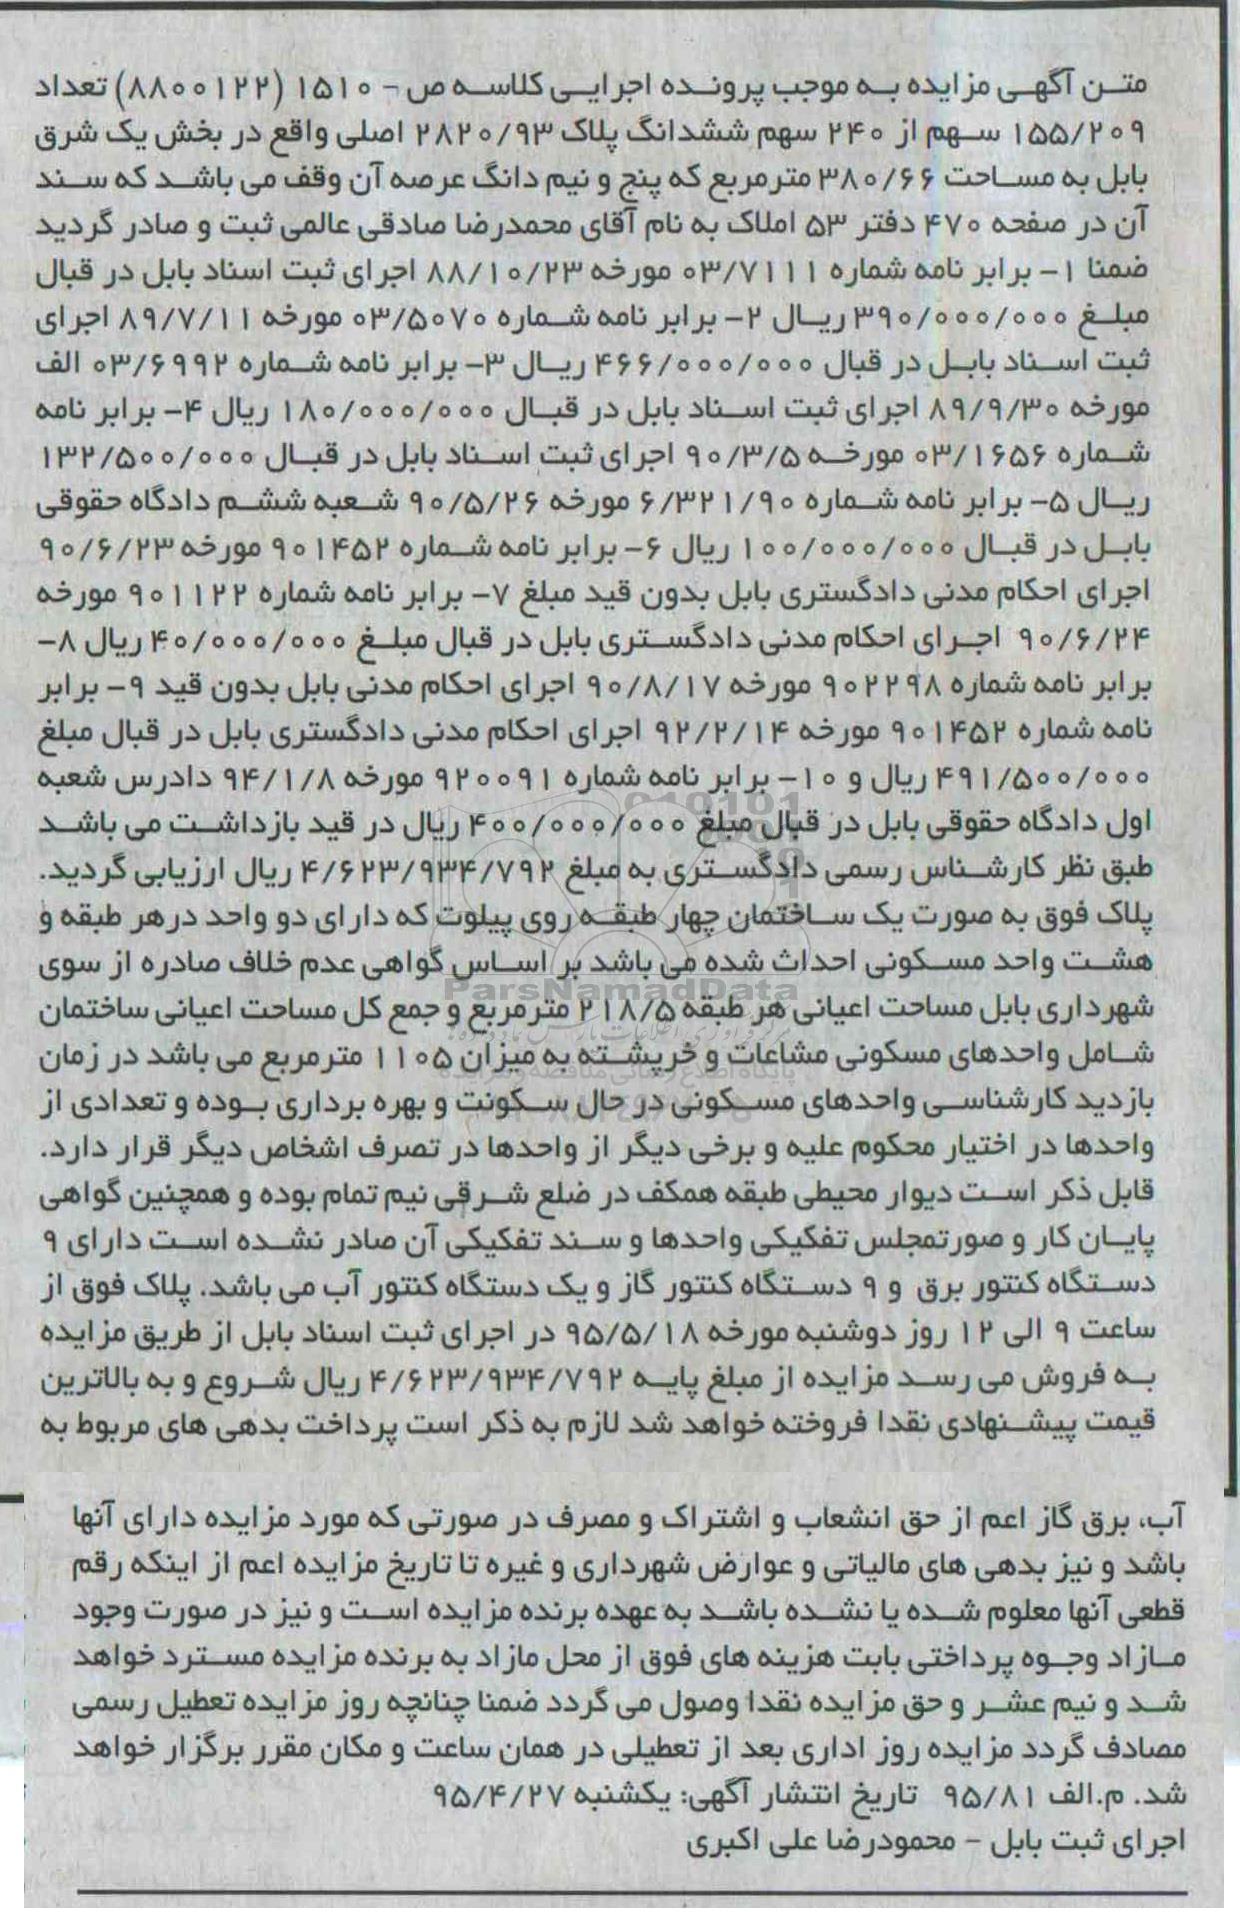 متن آگهی مزایده به موجب پرونده اجرایی کلاسه ص - ۱۵۱۰ (۸۸۰۰۱۲۲) تعداد
۱۵۵/۲۰۹ سهم از ۲۴۰ سهم ششدانگ پلاک ۲۸۲۰/۹۳ اصلی واقع در بخش یک شرق
بابل به مساحت ۳۸۰/۶۶ مترمربع که پنج و نیم دانگ عرصه آن وقف می باشد که سند
آن در صفحه ۴۷۰ دفتر ۵۳ املاک به نام آقای محمدرضا صادقی عالمی ثبت و صادر گردید
ضمنا ۱- برابر نامه شماره ۰۳/۷۱۱۱ مورخه ۸۸/۱۰/۲۳ اجرای ثبت اسناد بابل در قبال
مبلغ ۳۹۰/۰۰۰/۰۰۰ ریال ۲- برابر نامه شماره ۰۳/۵۰۷۰ مورخه ۸۹/۷/۱۱ اجرای
ثبت اسناد بابل در قبال ۴۶۶/۰۰۰/۰۰۰ ریال ۳- برابر نامه شماره ۰۳/۶۹۹۲ الف
مورخه ۸۹/۹/۳۰ اجرای ثبت اسناد بابل در قبال ۱۸۰/۰۰۰/۰۰۰ ریال ۴- برابر نامه
شماره ۰۳/۱۶۵۶ مورخه ۹۰/۳/۵ اجرای ثبت اسناد بابل در قبال ۱۳۲/۵۰۰/۰۰۰
ریال ۵- برابر نامه شماره ۶/۳۲۱/۹۰ مورخه ۹۰/۵/۲۶ شعبه ششم دادگاه حقوقی
بابل در قبال ۱۰۰/۰۰۰/۰۰۰ ریال ۶- برابر نامه شماره ۹۰۱۴۵۲ مورخه ۹۰/۶/۲۳
اجرای احکام مدنی دادگستری بابل بدون قید مبلغ ۷- برابر نامه شماره ۹۰۱۱۲۲ مورخه
۹۰/۶/۲۴ اجرای احکام مدنی دادگستری بابل در قبال مبلغ ۴۰/۰۰۰/۰۰۰ ریال ۸-
برابر نامه شماره ۹۰۲۲۹۸ مورخه ۹۰/۸/۱۷ اجرای احکام مدنی بابل بدون قید ۹- برابر
نامه شماره ۹۰۱۴۵۲ مورخه ۹۲/۲/۱۴ اجرای احکام مدنی دادگستری بابل در قبال مبلغ
۴۹۱/۵۰۰/۰۰۰ ریال و ۱۰- برابر نامه شماره ۹۲۰۰۹۱ مورخه ۹۴/۱/۸ دادرس شعبه
اول دادگاه حقوقی بابل در قبال مبلغ ۴۰۰/۰۰۰/۰۰۰ ریال در قید بازداشت می باشد
طبق نظر کارشناس رسمی دادگستری به مبلغ ۴/۶۲۳/۹۳۴/۷۹۲ ریال ارزیابی گردید.
پلاک فوق به صورت یک ساختمان چهار طبقه روی پیلوت که دارای دو واحد درهر طبقه و
هشت واحد مسکونی احداث شده می باشد بر اساس گواهی عدم خلاف صادره از سوی
شهرداری بابل مساحت اعیانی هر طبقه ۲۱۸/۵ مترمربع و جمع کل مساحت اعیانی ساختمان
شامل واحدهای مسکونی مشاعات و خرپشته به میزان ۱۱۰۵ مترمربع می باشد در زمان
بازدید کارشناسی واحدهای مسکونی در حال سکونت و بهره برداری بوده و تعدادی از
واحدها در اختیار محکوم علیه و برخی دیگر از واحدها در تصرف اشخاص دیگر قرار دارد.
قابل ذکر است دیوار محیطی طبقه همکف در ضلع شرقی نیم تمام بوده و همچنین گواهی
پایان کار و صورتمجلس تفکیکی واحدها و سند تفکیکی آن صادر نشده است دارای ۹
دستگاه کنتور برق و ۹ دستگاه کنتور گاز و یک دستگاه کنتور آب می باشد. پلاک فوق از
ساعت ۹ الی ۱۲ روز دوشنبه مورخه ۹۵/۵/۱۸ در اجرای ثبت اسناد بابل از طریق مزایده
به فروش می رسد مزایده از مبلغ پایه ۴/۶۲۳/۹۳۴/۷۹۲ ریال شروع و به بالاترین
قیمت پیشنهادی نقدا فروخته خواهد شد لازم به ذکر است پرداخت بدهی های مربوط به
آب، برق گاز اعم از حق انشعاب و اشتراک و مصرف در صورتی که مورد مزایده دارای آنها
باشد و نیز بدهی های مالیاتی و عوارض شهرداری و غیره تا تاریخ مزایده اعم از اینکه رقم
قطعی آنها معلوم شده یا نشده باشد به عهده برنده مزایده است و نیز در صورت وجود
مازاد وجوه پرداختی بابت هزینه های فوق از محل مازاد به برنده مزایده مسترد خواهد
شد و نیم عشر و حق مزایده نقدا وصول می گردد ضمنا چنانچه روز مزایده تعطیل رسمی
مصادف گردد مزایده روز اداری بعد از تعطیلی در همان ساعت و مکان مقرر برگزار خواهد
شد. م.الف ۹۵/۸۱ تاریخ انتشار آگهی: یکشنبه ۹۵/۴/۲۷
اجرای ثبت بابل - محمودرضا علی اکبری
ParsNamadData